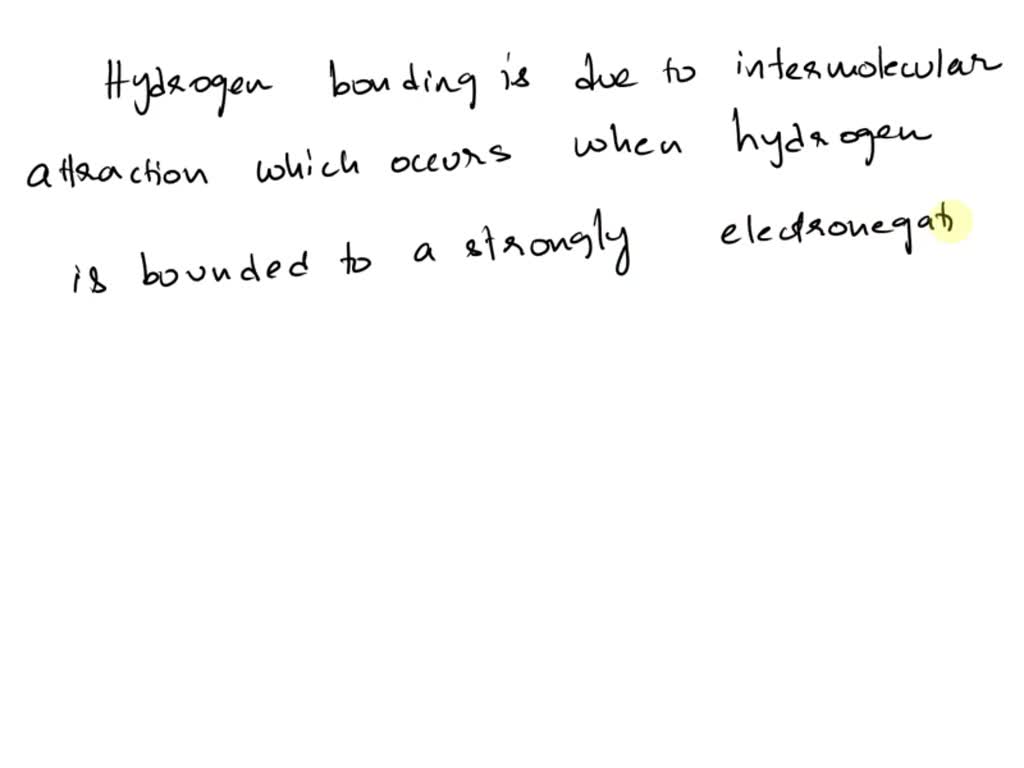 Hydrogen bonding is due to intermolecular
attraction which occurs when hydrogen
is bounded to a strongly electronegat